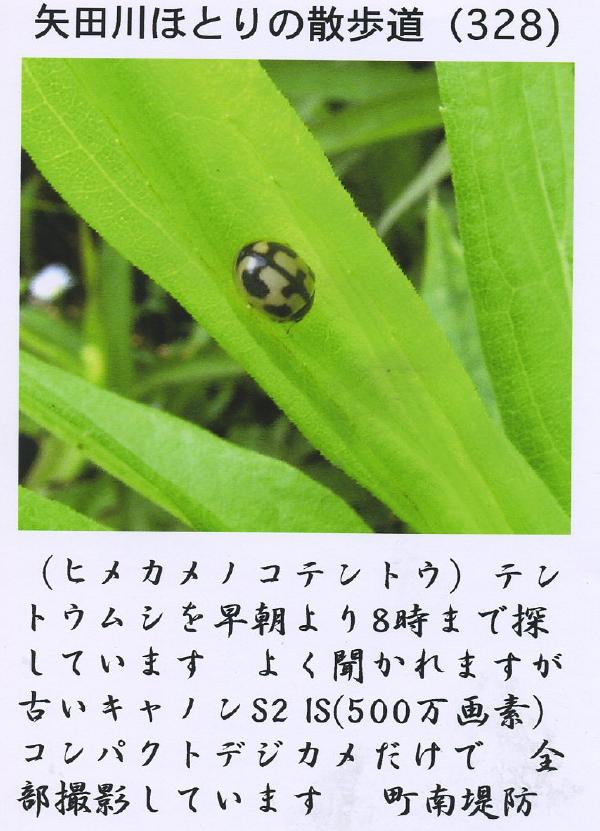 矢田川ほとりの散歩道（328)
（ヒメカメノコテントウ）テン
トウムシを早朝より8時まで探
しています　よく聞かれますが
古いキャノンS2 IS(500万画素）
コンパクトデジカメだけで　全
部撮影しています　町南堤防